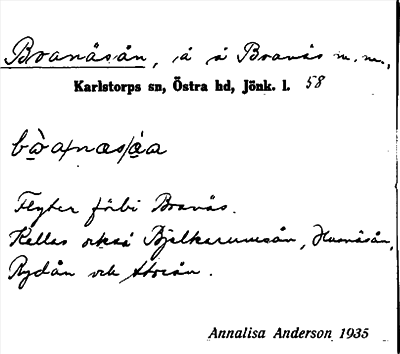 Branåsån, å å Branås m. m.,
Karlstorps sn, Östra hd, Jönk. l. 58
Flyter förbi Branås.
Kallas också Bjelkarumsån, Husnäsån,
Rydån och Storån.
Annalisa Anderson 1935